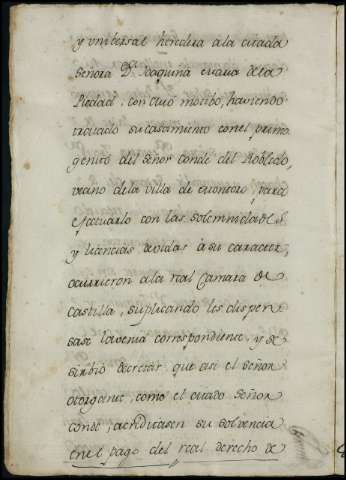 y universal heredera a la citada
señora Dª Joaquina Maria de la
Piedad, con cuio motibo, haviendo
tratado su casamiento con el primo
genito del señor conde del Robledo,
vecino de la villa de Montoro, para
efectuarlo con las solemnidades
y licencias devidas à su caracter,
ocurrieron a la real Camara de
Castilla, suplicando les dispen
sase la venia correspondiente, y se
sirbio decretar que asi el señor
otorgante, como el citado señor
conde, acreditasen su solvencia
en el pago del real derecho de